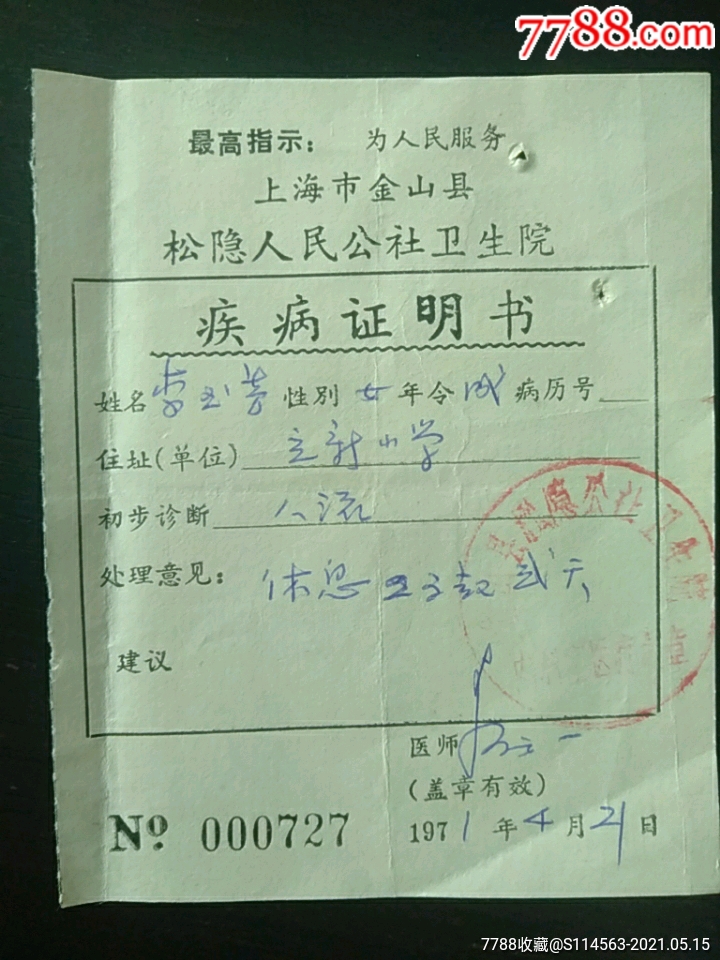 7788.com
最高指示: 为人民服务
上海市金山县
松隐人民公社卫生院
疾病证明书
姓名 李玉芳 性别 女 年令 成 病历号
住址(单位) 立新小学
初步诊断 人流
处理意见: 休息 天
建议
医师
(盖章有效)
No 000727
1971年4月21日
7788收藏@S114563-2021.05.15